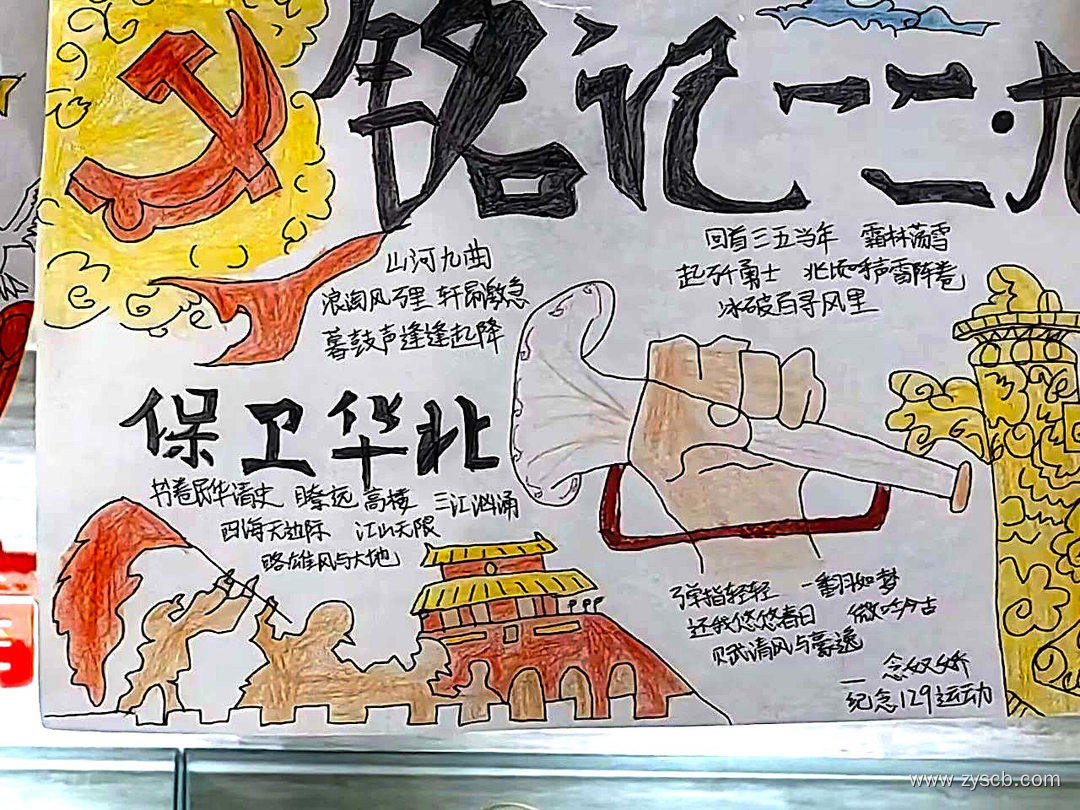 铭记一二·九
山河九曲
浪淘风万里 轩昂激急
暮鼓声逢逢起降
回首三五当年 霜林荡雪
起歼勇士 北顷呼声雷阵卷
冰破百寻风里
保卫华北
书卷民华清史 瞭远高楼 三江汹涌
四海天边际 江山无限
略雄风与大地
弹指轻轻 一翻如梦
还我悠悠春日 微吟今古
赋清风与豪逸
—念奴娇
纪念129运动
www.zyscb.com